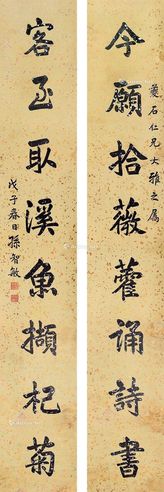 夔石仁兄大雅之属
今願拾薇藿诵詩書
客至取溪魚擷杞菊
戊子春日孫智敏